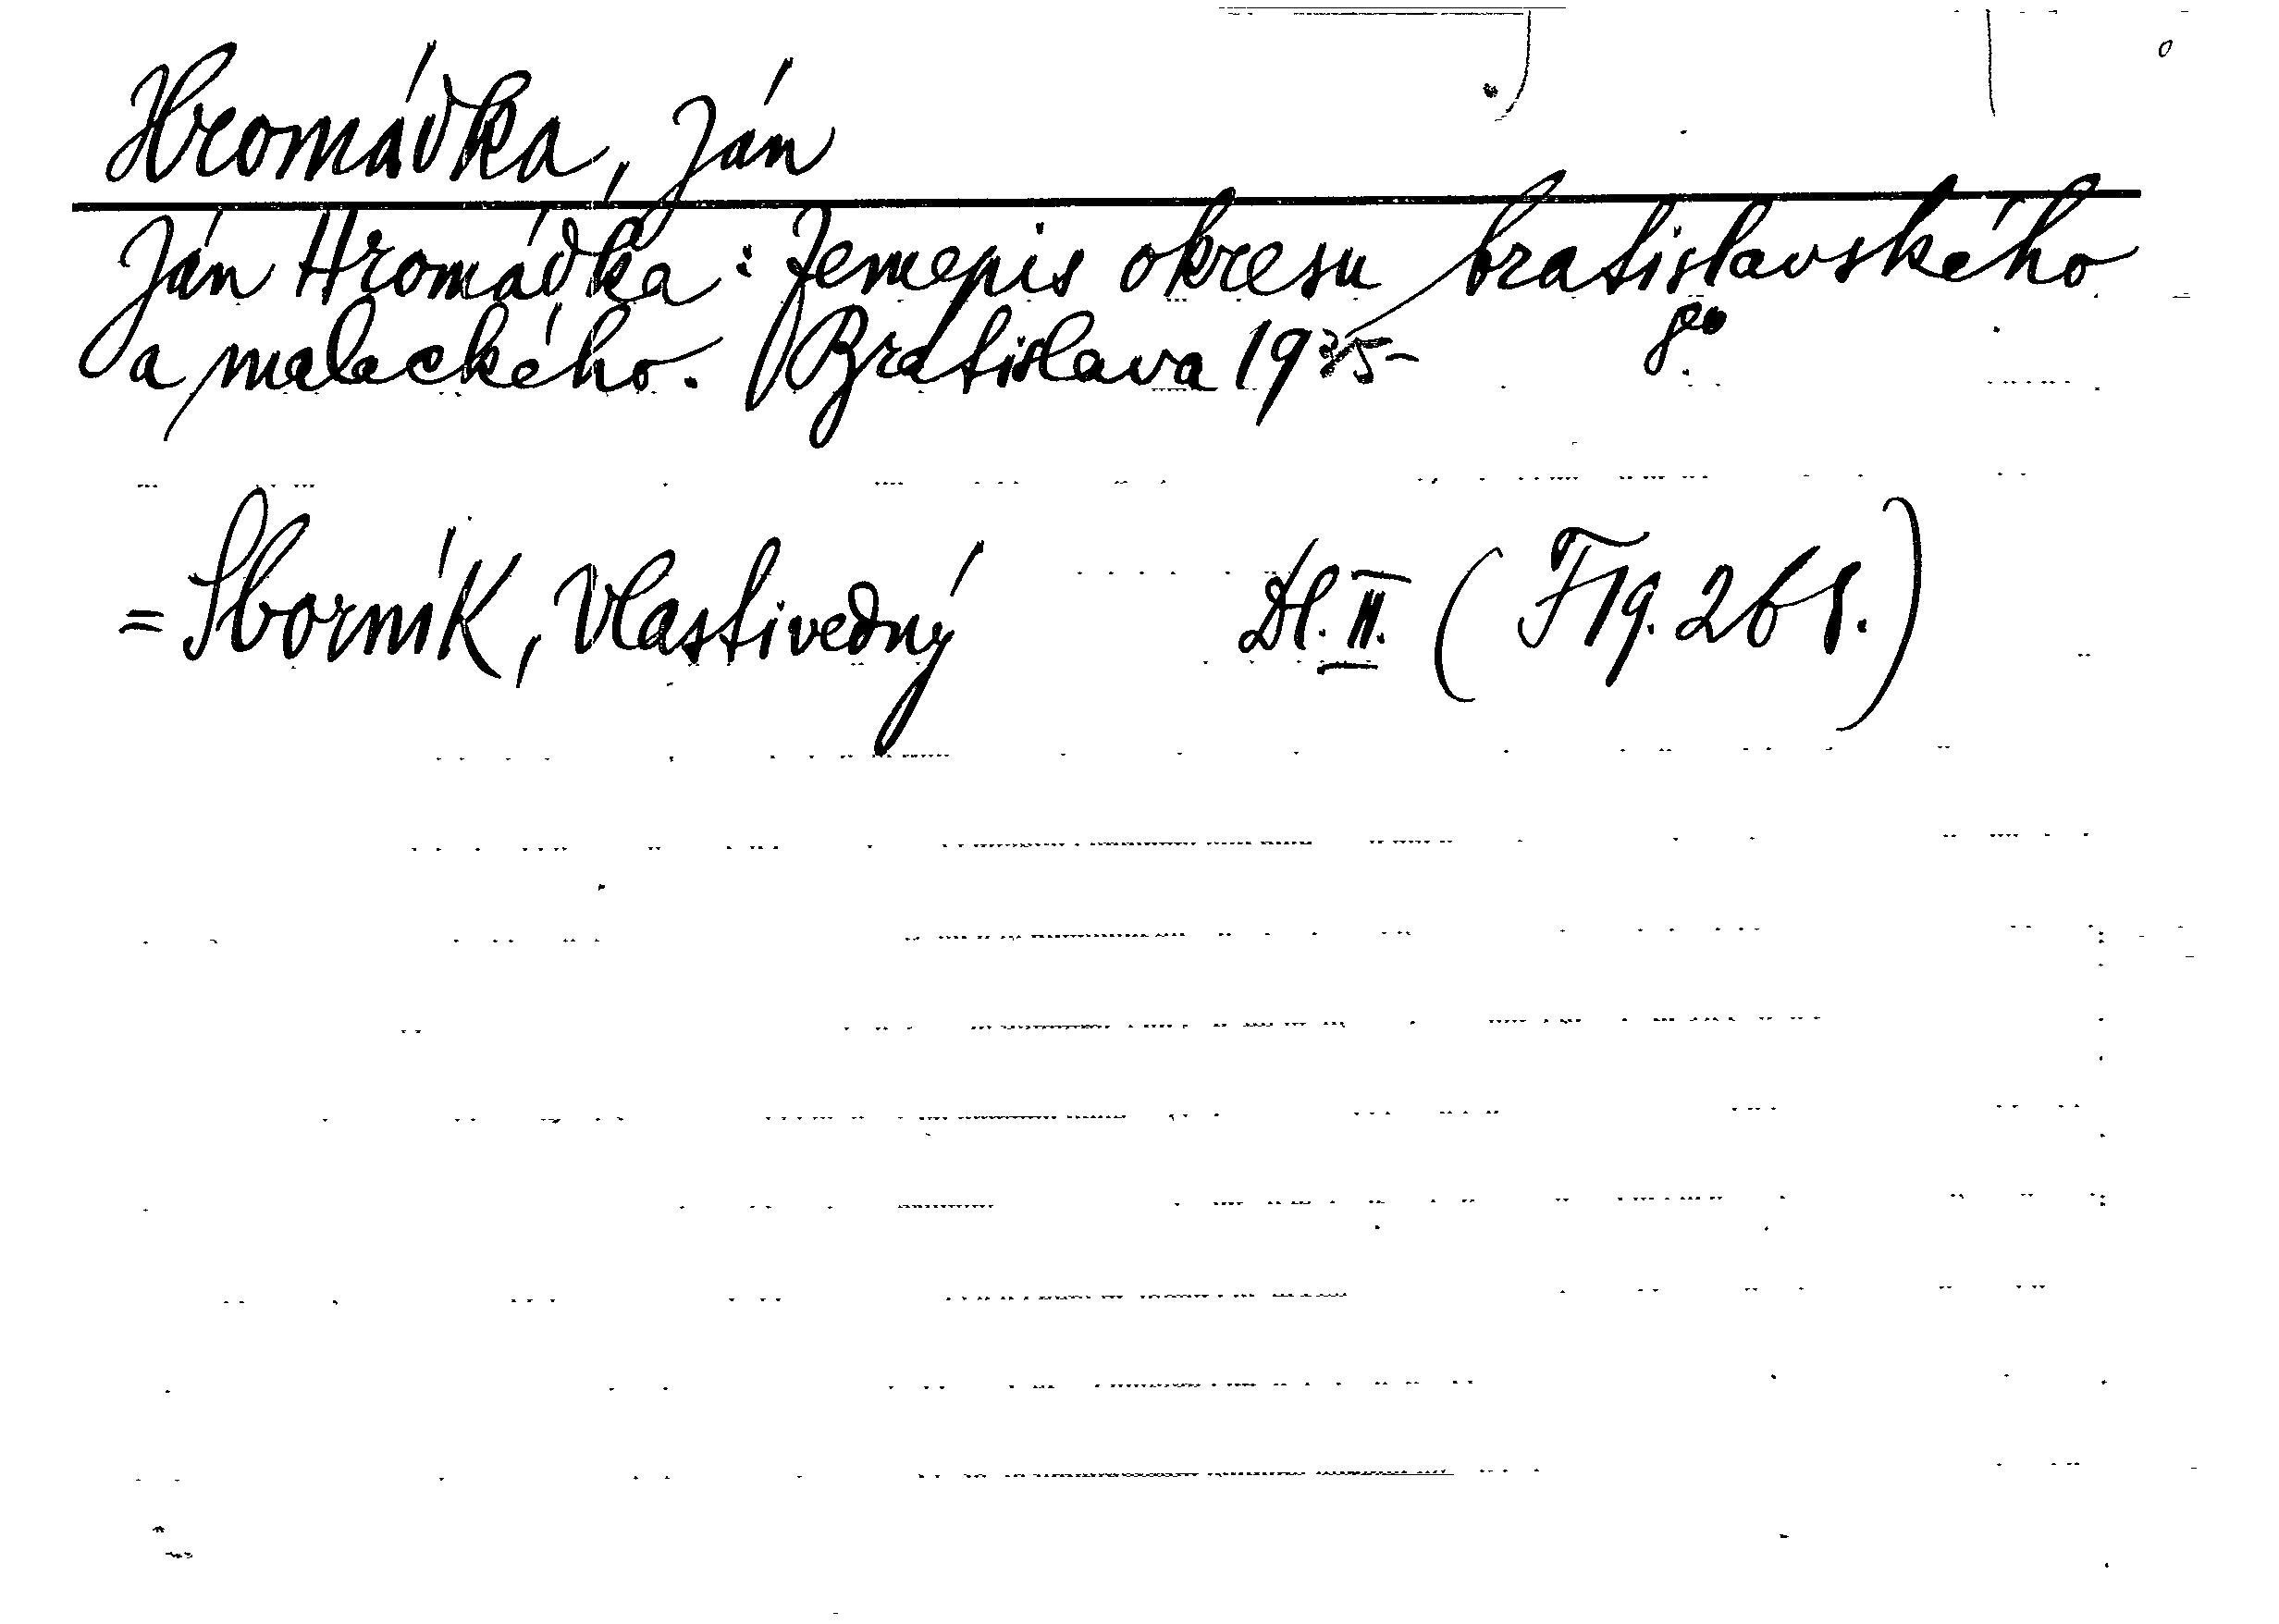 Hromádka, Ján
Ján Hromádka: Zemepis okresu bratislavského
a malackého. Bratislava 1935-
= Sborník, Vlastivedný Dl. II. (F 19.261.)